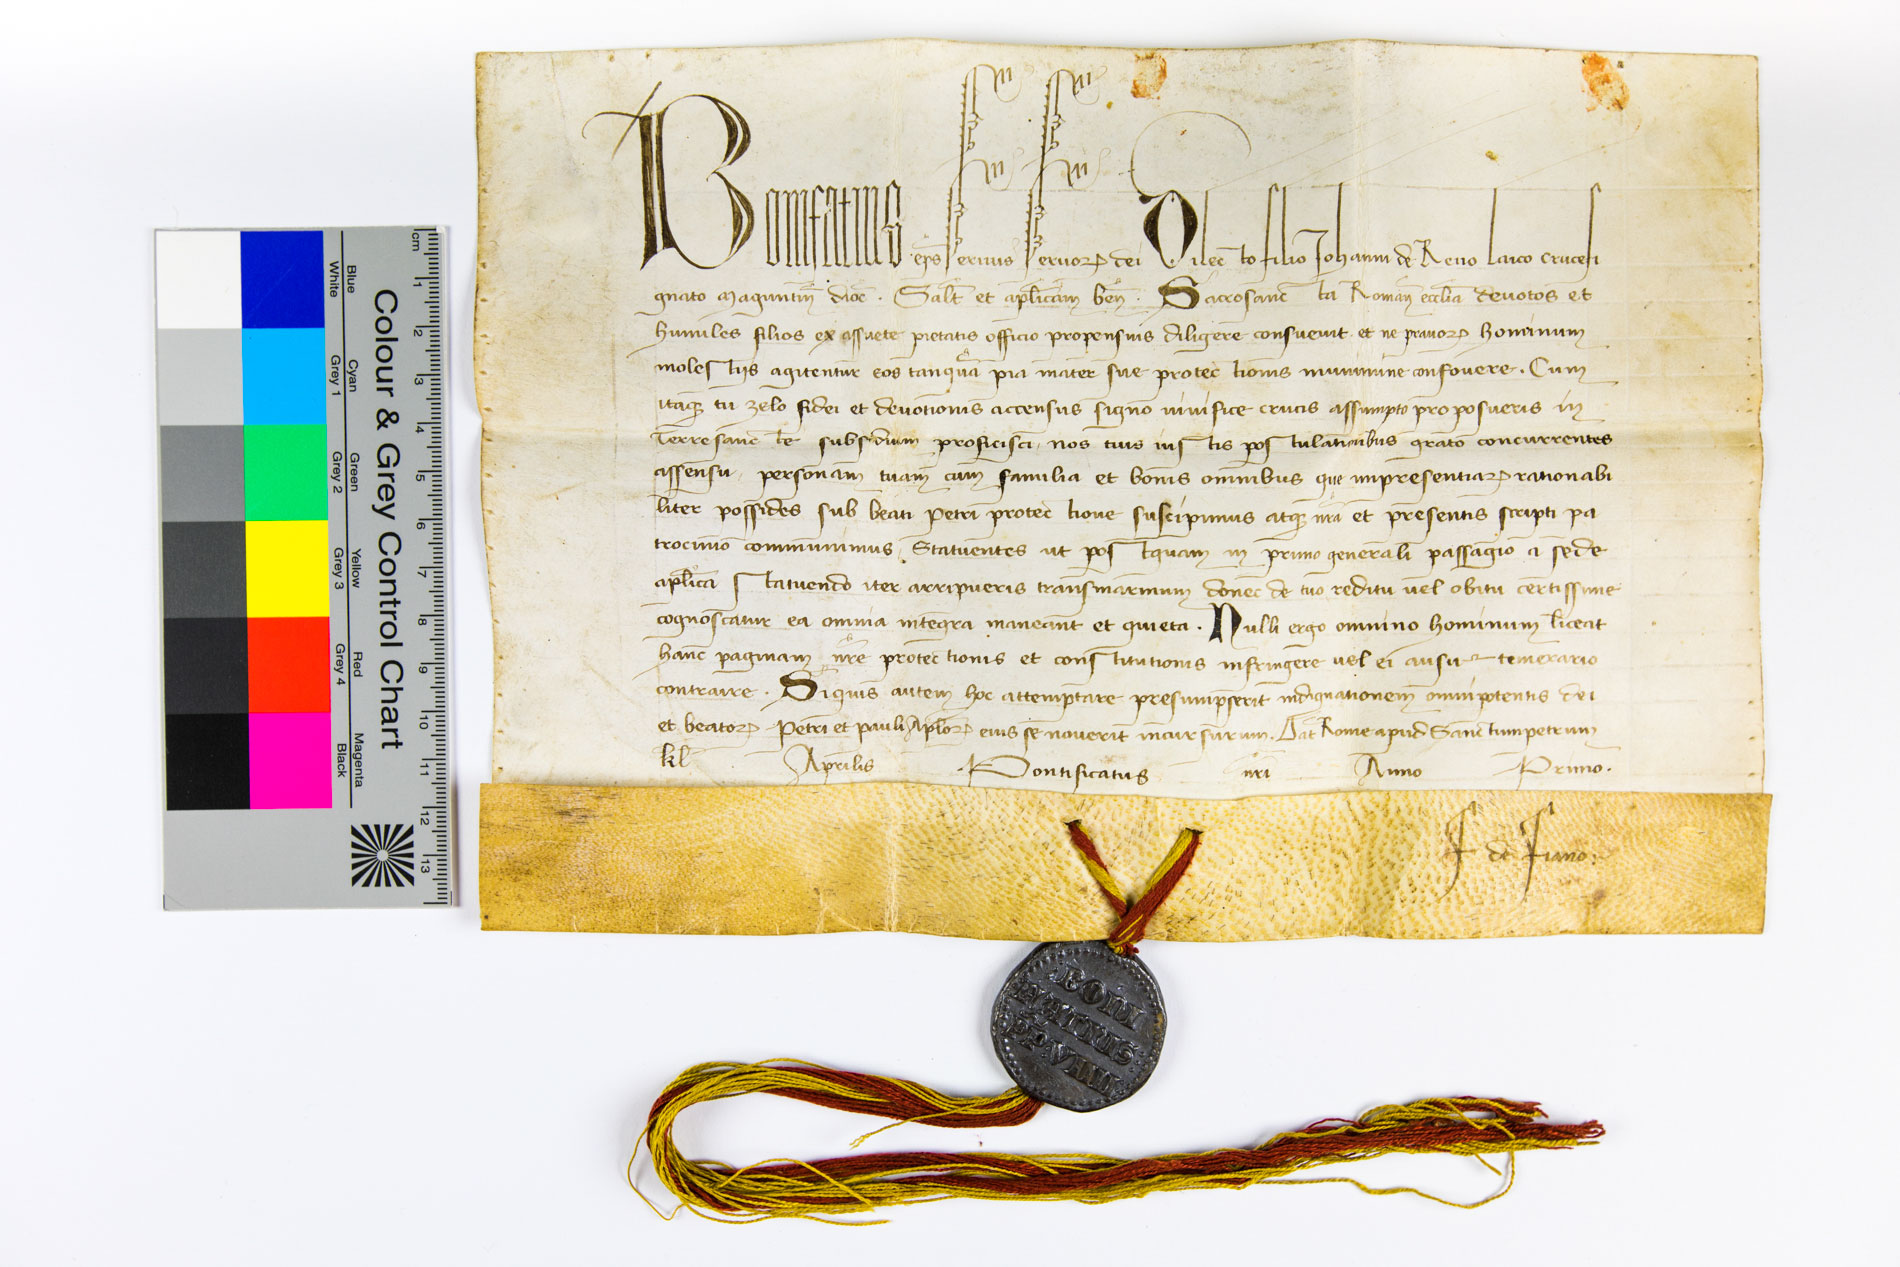 Bonifatius ep̄s servus servoꝝ dei Dilecto filio Johanni de Reno laico crucesi
gnato Maguntin̄ dioc̄ . Salt̄ et ap̄licam̄ ben̄ . Sacrosancta Roman̄ ecclia devotos et
humiles filios ex assuete pietatis officio propensius diligere consuevit et ne pravoꝝ hominum
molestiis agitentur eos tanqua pia mater sue protectionis munimine confovere . Cum
itaqꝫ tu zelo fidei et devotionis accensus signo vivifice crucis assumpto proposueris in
Terre sancte subsidium proficisci, nos tuis iustis postulationibus grato concurrentes
assensu, personam tuam cum familia et bonis omnibus que inpresentiaꝝ rationabi
liter possides sub beati Petri protectione suscipimus atqꝫ nrā et presentis scripti pa
trocinio communimus, Statuentes ut postquam in primo generali passagio a sede
aplica statuendo iter arripueris transmarinum donec de tuo reditu vel obitu certissime
cognoscatur ea omnia integra maneant et quieta . Nulli ergo omnino hominum liceat
hanc paginam nr̄e protectionis et constitutionis infringere vel ei ausu temerario
contraire . Siquis autem hoc attemptare presumpserit indignationem omnipotentis dei
et beatoꝝ Petri et Pauli Aploꝝ eius se noverit incursurum . Dat̄ Rome apud Sanctumpetrum
kl̄ Aprilis Pontificatus nri Anno Primo .
F de Fiano :
BONI
FATIUS :
PP : VIIII
Colour & Grey Control Chart
Blue
White
Cyan
Grey 1
Green
Grey 2
Yellow
Grey 3
Red
Grey 4
Magenta
Black
cm 1 2 3 4 5 6 7 8 9 10 11 12 13